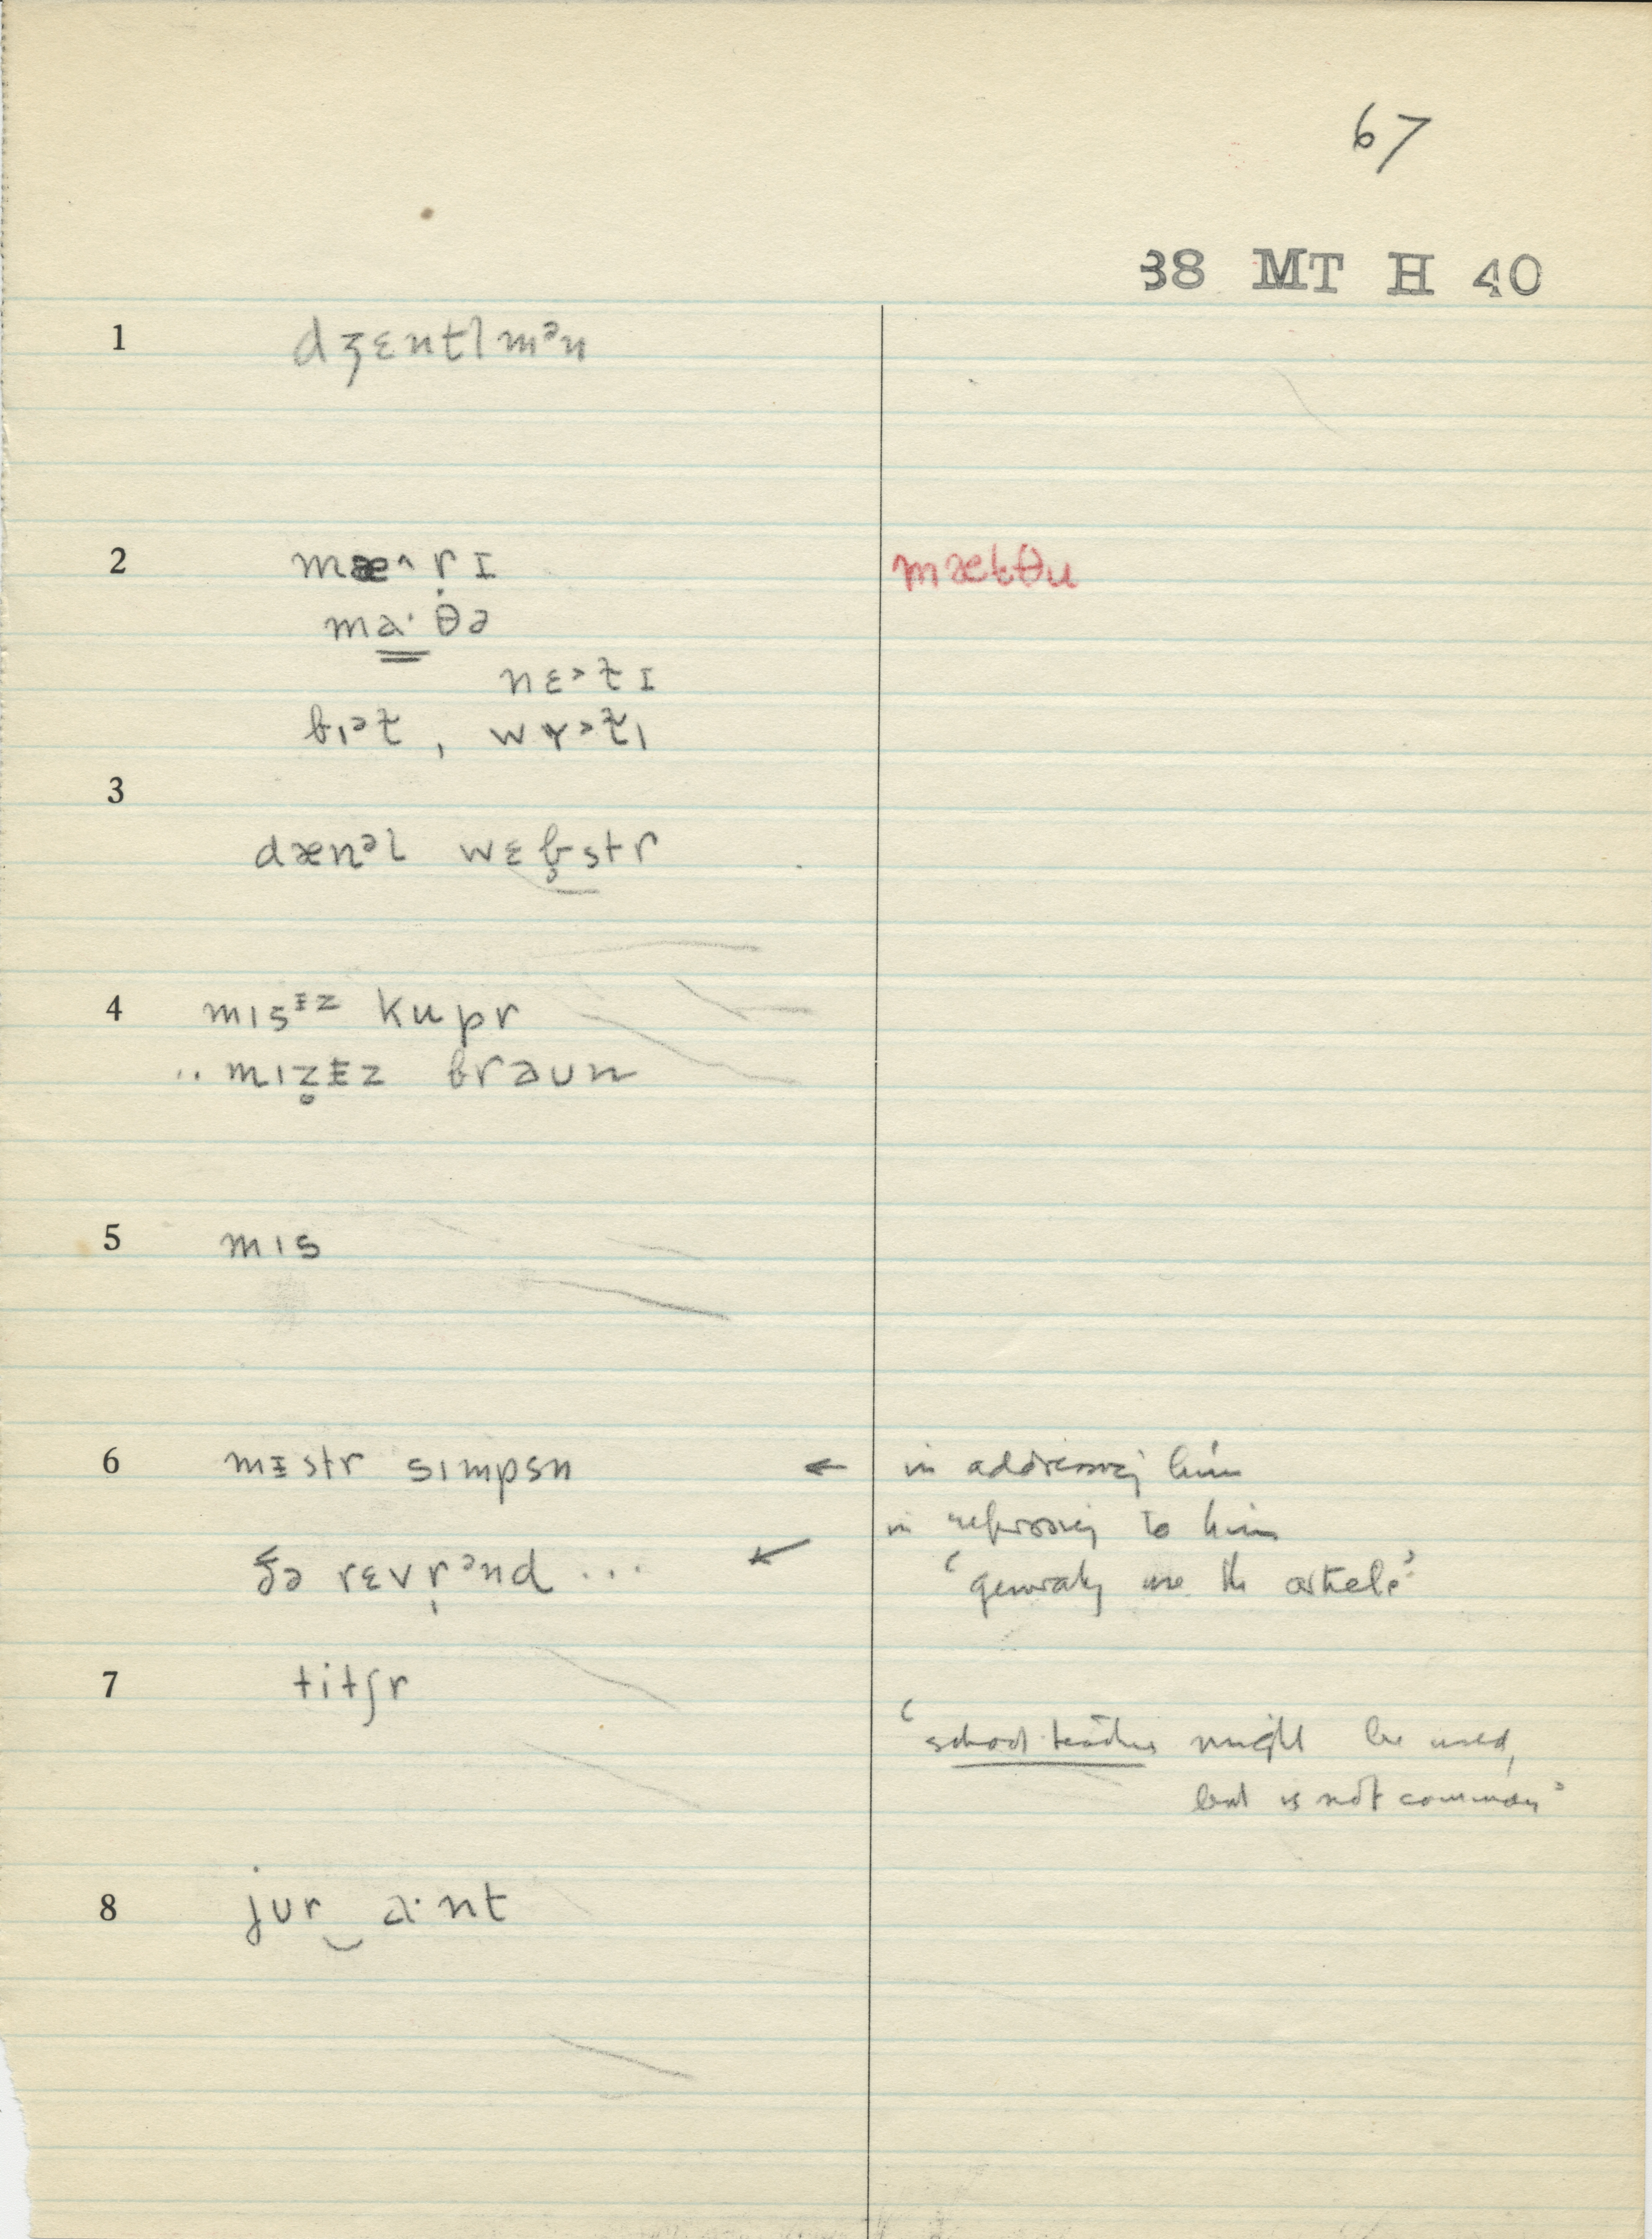 67
38 MT H 40
1 dʒɛntlmᵊn
2 mæ˄r̩ɪ mætθu
ma·θə
nɛ˃t̬ɪ
bɪᵊt̬, wɤ˃t̬ɪ
3
dænᵊl wɛb̥str
4 mɪsᵻᶻ kupr
.. mɪz̥ᵻz braun
5 mɪs
6 mᵻstr sɪmpsn ← in addressing him
in referring to him
ðə rɛvr̩ᵊnd ... ↙ ‘generally use the article’
7 titʃr
‘school teacher might be used,
but is not common’
8 jʊr‿a·nt